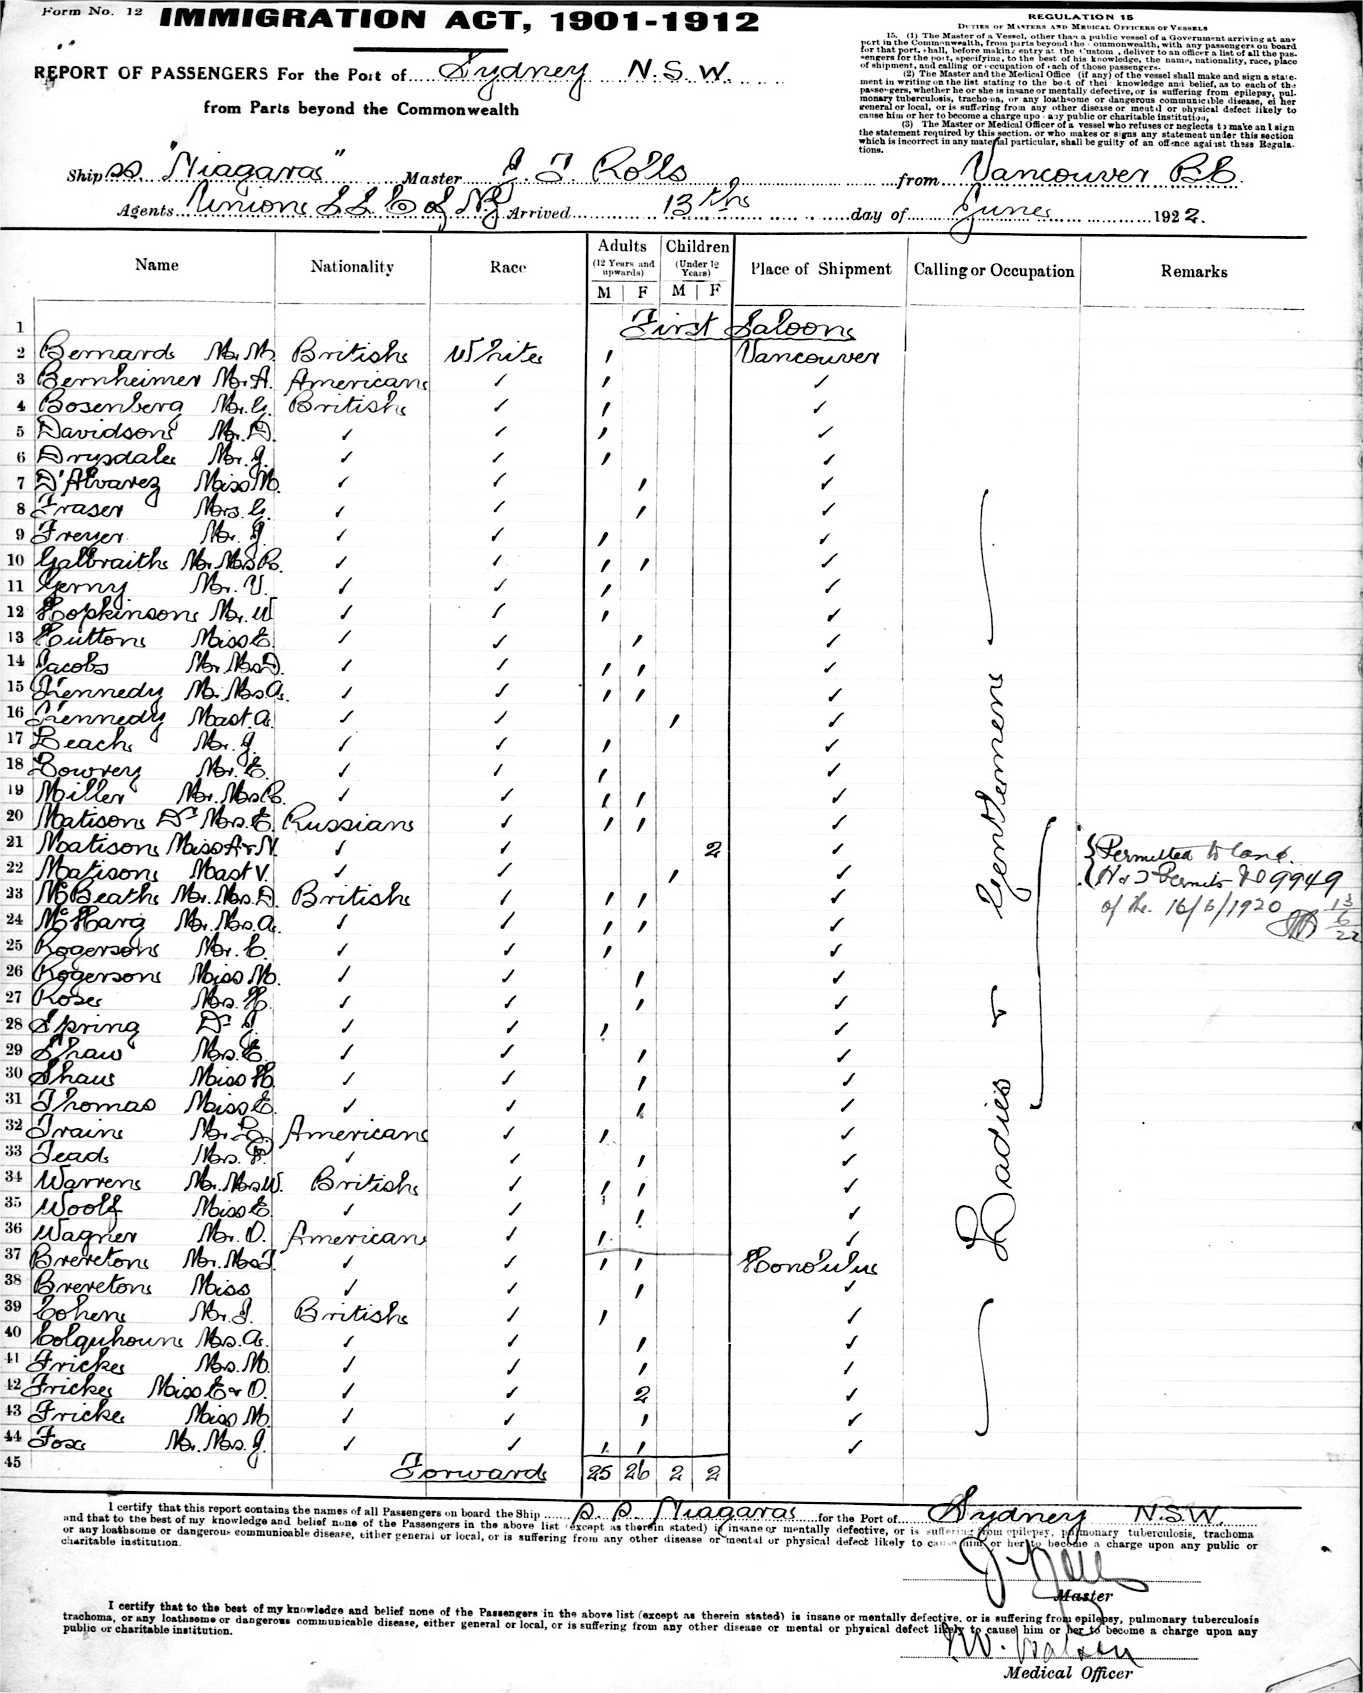 Form No. 12
IMMIGRATION ACT, 1901-1912
REPORT OF PASSENGERS For the Port of Sydney N.S.W.
from Parts beyond the Commonwealth
REGULATION 15
DUTIES OF MASTERS AND MEDICAL OFFICERS OF VESSELS
15. (1) The Master of a Vessel, other than a public vessel of a Government arriving at any
port in the Commonwealth, from parts beyond the Commonwealth, with any passengers on board
for that port, shall, before making entry at the Custom, deliver to an officer a list of all the pas-
sengers for the port, specifying, to the best of his knowledge, the name, nationality, race, place
of shipment, and calling or occupation of each of those passengers.
(2) The Master and the Medical Office (if any) of the vessel shall make and sign a state-
ment in writing on the list stating to the best of their knowledge and belief, as to each of the
passengers, whether he or she is insane or mentally defective, or is suffering from epilepsy, pul-
monary tuberculosis, trachoma, or any loathsome or dangerous communicable disease, either
general or local, or is suffering from any other disease or mental or physical defect likely to
cause him or her to become a charge upon any public or charitable institution.
(3) The Master or Medical Officer of a vessel who refuses or neglects to make and sign
the statement required by this section, or who makes or signs any statement under this section
which is incorrect in any material particular, shall be guilty of an offence against these Regula-
tions.
Ship ss. "Niagara" Master J. T. Rolls from Vancouver B.C.
Agents Union S.S. Co of N.Z. Arrived 13th day of June 1922.
Name Nationality Race Adults (12 Years and upwards) M F Children (Under 12 Years) M F Place of Shipment Calling or Occupation Remarks
1 First Saloon
2 Bernard Mr. M. British White ' Vancouver
3 Bernheimer Mr. A. American ✓ ' ✓
4 Bosenberg Mr. G. British ✓ ' ✓
5 Davidson Mr. D. ✓ ✓ ' ✓
6 Drysdale Mr. J. ✓ ✓ ' ✓
7 D'Alvarez Miss M. ✓ ✓ ' ✓
8 Fraser Mrs. G. ✓ ✓ ' ✓
9 Freyer Mr. J. ✓ ✓ ' ✓
10 Galbraith Mr. Mrs R. ✓ ✓ ' ' ✓
11 Gerny Mr. V. ✓ ✓ ' ✓
12 Hopkinson Mr. W ✓ ✓ ' ✓
13 Hutton Miss E. ✓ ✓ ' ✓
14 Jacobs Mr. Mrs D. ✓ ✓ ' ' ✓
15 Kennedy Mr. Mrs A. ✓ ✓ ' ' ✓
16 Kennedy Mast. A. ✓ ✓ ' ✓
17 Leach Mr. J. ✓ ✓ ' ✓
18 Lowrey Mr. E. ✓ ✓ ' ✓
19 Miller Mr. Mrs R. ✓ ✓ ' ' ✓
20 Matison Dr Mrs. E. Russian ✓ ' ' ✓
21 Matison Miss A & N. ✓ ✓ 2 ✓
22 Matison Mast V. ✓ ✓ ' ✓
23 McBeath Mr. Mrs. D. British ✓ ' ' ✓
24 McHarg Mr. Mrs. A. ✓ ✓ ' ' ✓
25 Rogerson Mr. C. ✓ ✓ ' ✓
26 Rogerson Miss M. ✓ ✓ ' ✓
27 Rose Mrs. H. ✓ ✓ ' ✓
28 Spring Dr J. ✓ ✓ ' ✓
29 Shaw Mrs. E. ✓ ✓ ' ✓
30 Shaw Miss H. ✓ ✓ ' ✓
31 Thomas Miss E. ✓ ✓ ' ✓
32 Train Mr. American ✓ ' ✓
33 Tead Mrs. F. ✓ ✓ ' ✓
34 Warren Mr. Mrs W. British ✓ ' ' ✓
35 Woolf Miss E. ✓ ✓ ' ✓
36 Wagner Mr. O. American ✓ ' ✓
37 Brereton Mr. Mrs T. ✓ ✓ ' ' Honolulu
38 Brereton Miss ✓ ✓ ' ✓
39 Cohen Mr. J. British ✓ ' ✓
40 Colquhoun Mrs. A. ✓ ✓ ' ✓
41 Fricke Mrs. M. ✓ ✓ ' ✓
42 Fricke Miss E & D. ✓ ✓ 2 ✓
43 Fricke Miss M. ✓ ✓ ' ✓
44 Fox Mr. Mrs. J. ✓ ✓ ' ' ✓
45 Forward 25 26 2 2
Ladies & Gentlemen
Permitted to land.
H & T Permit No 9949
of the 16/6/1920
13
6
22
I certify that this report contains the names of all Passengers on board the Ship S.S. Niagara for the Port of Sydney N.S.W.
and that to the best of my knowledge and belief none of the Passengers in the above list (except as therein stated) is insane or mentally defective, or is suffering from epilepsy, pulmonary tuberculosis, trachoma
or any loathsome or dangerous communicable disease, either general or local, or is suffering from any other disease or mental or physical defect likely to cause him or her to become a charge upon any public or
charitable institution.
J T Rolls
Master
I certify that to the best of my knowledge and belief none of the Passengers in the above list (except as therein stated) is insane or mentally defective, or is suffering from epilepsy, pulmonary tuberculosis
trachoma, or any loathsome or dangerous communicable disease, either general or local, or is suffering from any other disease or mental or physical defect likely to cause him or her to become a charge upon any
public or charitable institution.
Medical Officer